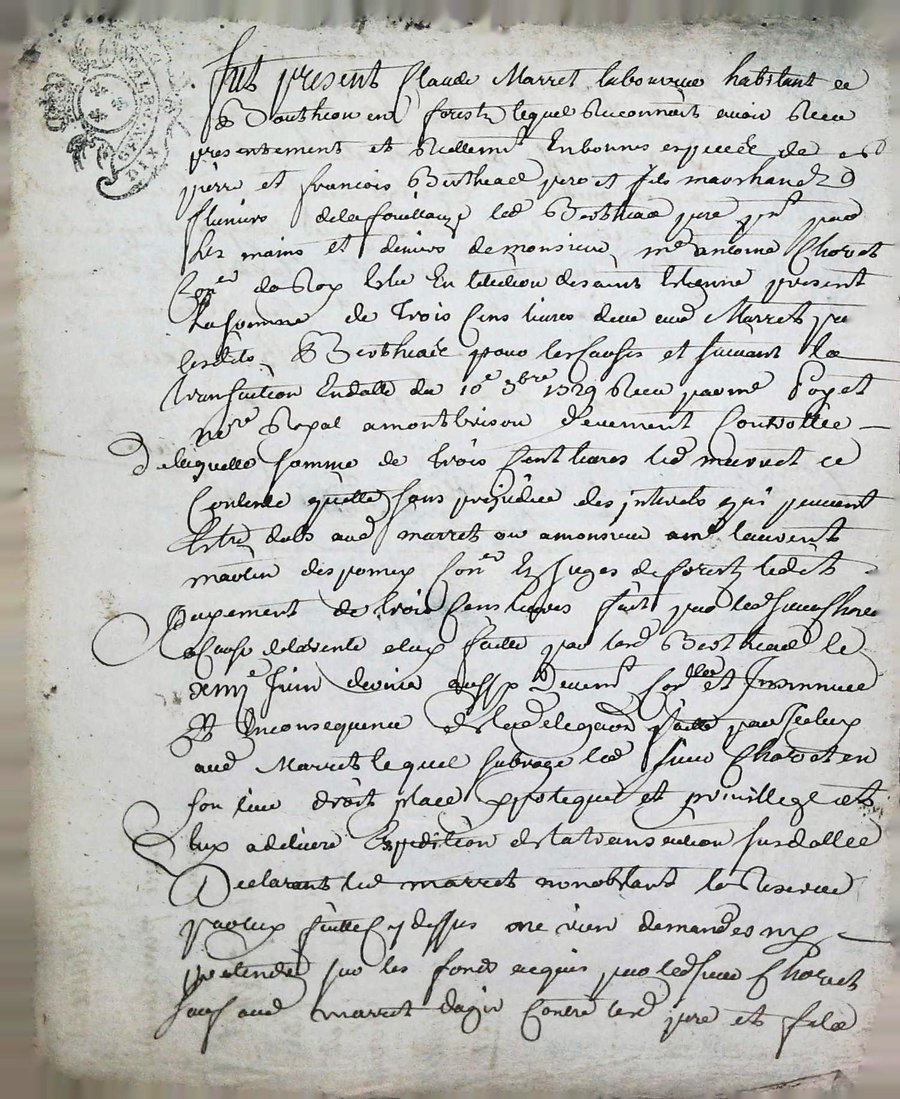 GENERALE
DIX
Fut present Claude Marret laboureur habitant de
Boutheon en forestz lequel Reconnoit avoir Receu
presentement et Reellemt En bonnes especes de
pierre et francois Berthead pere et fils marchandz
de la fouillouze led Berthead pere pnt par
les mains et deniers de monsieur me antoine Chovet
Coner du Roy Eslu En lelection de saint Etienne present
La somme de Trois Cens livres deue aud Marret par
lesdits Berthead pour les Causes et suivant la
transaction En datte du 10e 9bre 1729 Receu par me Poyet
nore Royal a montbrison deuement Controllee
De laquelle somme de trois Cent livres led marret se
Contente quitte sans prejudice des interets qui peuvent
Estre dubs aud marret ou a monsieur me laurent
maulin despomey Coner Es juges de forest ledit
payement de trois Cens livres fait par led sieur Chovet
a Cause de la vente a luy faitte par led Berthead le
xiiie juin dernier aussy deuemt Conllee et Insinuee
Et En consequence de la delegaon faitte par iceluy
aud Marret lequel subroge led sieur Chovet en
son lieu droit place ypoteque et privillege et
luy a delivré Expedition de la transaction susdattee
Declarant led marret nonobstant la Reserve
par luy faitte Cy dessus ne rien demander ny
pretendre sur les fonds acquis par led sieur Chovet
sauf aud marret dagir Contre lesd pere et fils